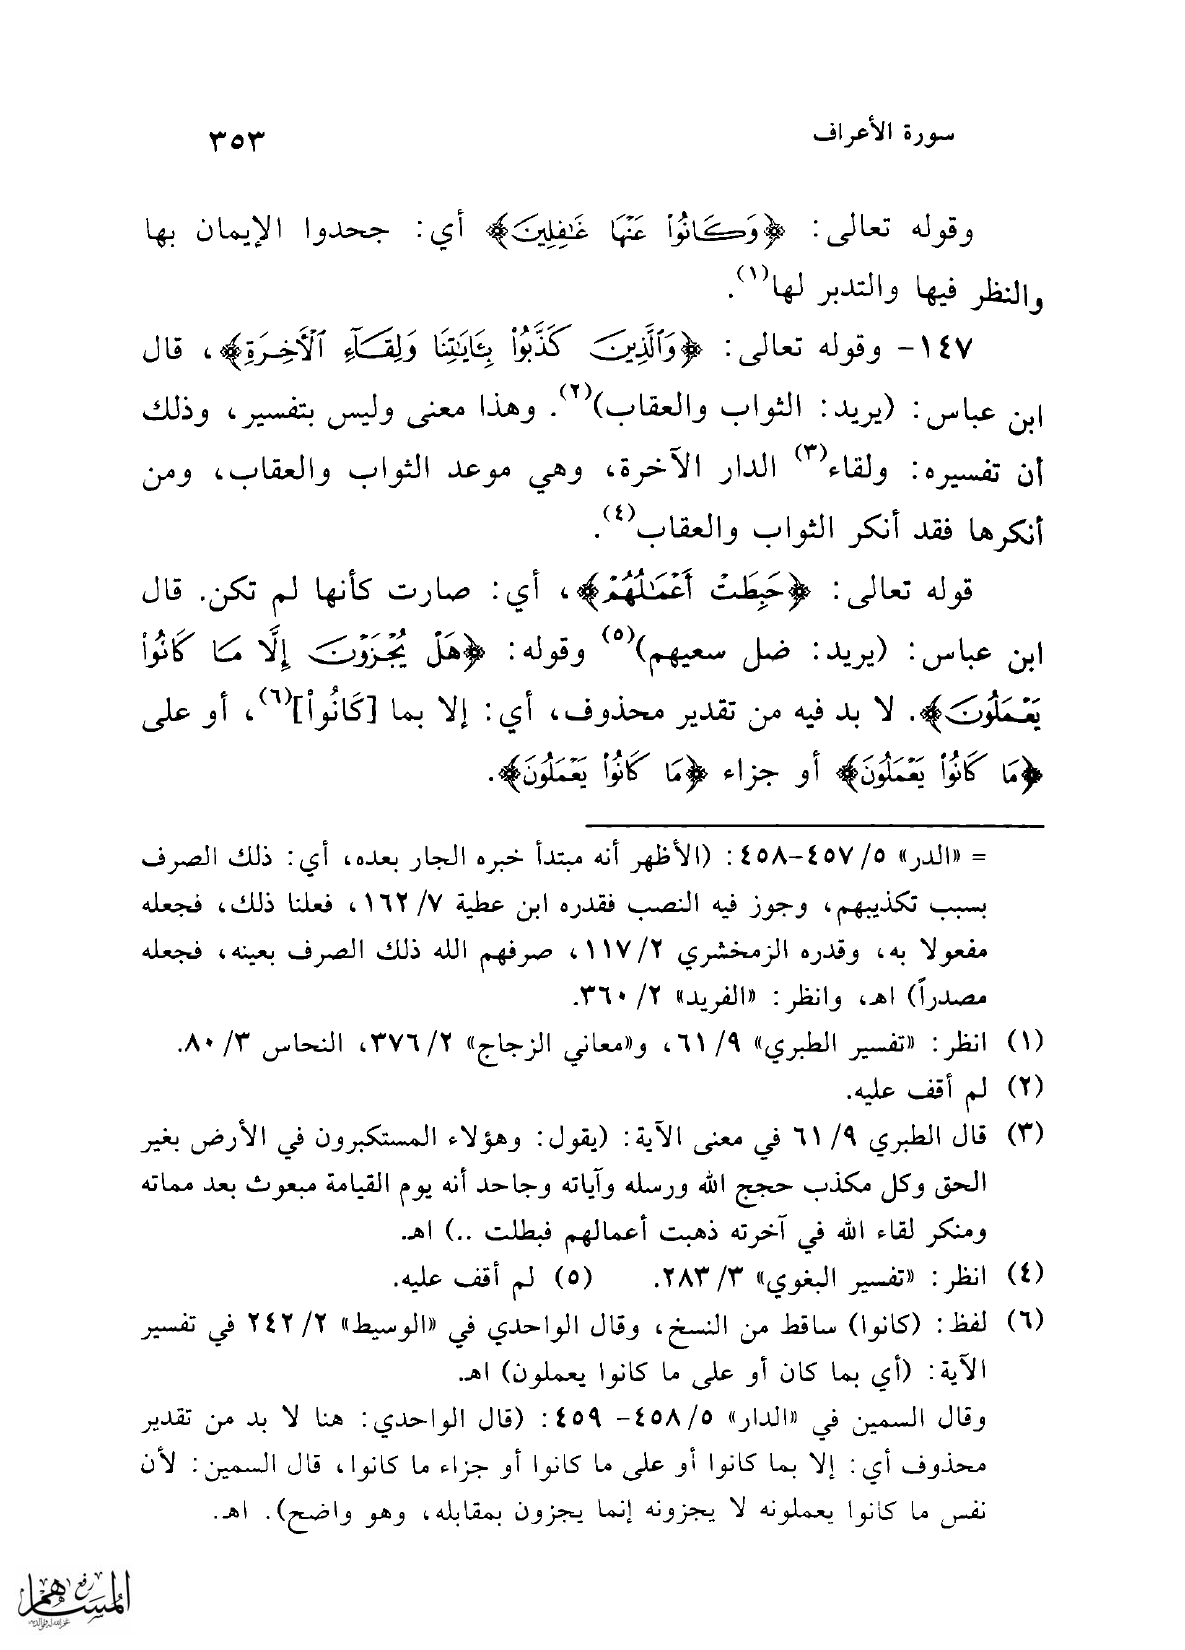 سورة الأعراف ٣٥٣
وقوله تعالى: ﴿وَكَانُوا۟ عَنْهَا غَـٰفِلِينَ﴾ أي: جحدوا الإيمان بها
والنظر فيها والتدبر لها(١).
١٤٧- وقوله تعالى: ﴿وَٱلَّذِينَ كَذَّبُوا۟ بِـَٔايَـٰتِنَا وَلِقَآءِ ٱلْأَخِرَةِ﴾، قال
ابن عباس: (يريد: الثواب والعقاب)(٢). وهذا معنى وليس بتفسير، وذلك
أن تفسيره: ولقاء(٣) الدار الآخرة، وهي موعد الثواب والعقاب، ومن
أنكرها فقد أنكر الثواب والعقاب(٤).
قوله تعالى: ﴿حَبِطَتْ أَعْمَـٰلُهُمْ﴾، أي: صارت كأنها لم تكن. قال
ابن عباس: (يريد: ضل سعيهم)(٥) وقوله: ﴿هَلْ يُجْزَوْنَ إِلَّا مَا كَانُوا۟
يَعْمَلُونَ﴾. لا بد فيه من تقدير محذوف، أي: إلا بما [كَانُوا۟](٦)، أو على
﴿مَا كَانُوا۟ يَعْمَلُونَ﴾ أو جزاء ﴿مَا كَانُوا۟ يَعْمَلُونَ﴾.
= «الدر» ٥/ ٤٥٧-٤٥٨: (الأظهر أنه مبتدأ خبره الجار بعده، أي: ذلك الصرف
بسبب تكذيبهم، وجوز فيه النصب فقدره ابن عطية ٧/ ١٦٢، فعلنا ذلك، فجعله
مفعولا به، وقدره الزمخشري ٢/ ١١٧، صرفهم الله ذلك الصرف بعينه، فجعله
مصدراً) اهـ، وانظر: «الفريد» ٢/ ٣٦٠.
(١) انظر: «تفسير الطبري» ٩/ ٦١، و«معاني الزجاج» ٢/ ٣٧٦، النحاس ٣/ ٨٠.
(٢) لم أقف عليه.
(٣) قال الطبري ٩/ ٦١ في معنى الآية: (يقول: وهؤلاء المستكبرون في الأرض بغير
الحق وكل مكذب حجج الله ورسله وآياته وجاحد أنه يوم القيامة مبعوث بعد مماته
ومنكر لقاء الله في آخرته ذهبت أعمالهم فبطلت ..) اهـ.
(٤) انظر: «تفسير البغوي» ٣/ ٢٨٣. (٥) لم أقف عليه.
(٦) لفظ: (كانوا) ساقط من النسخ، وقال الواحدي في «الوسيط» ٢/ ٢٤٢ في تفسير
الآية: (أي بما كان أو على ما كانوا يعملون) اهـ.
وقال السمين في «الدار» ٥/ ٤٥٨- ٤٥٩: (قال الواحدي: هنا لا بد من تقدير
محذوف أي: إلا بما كانوا أو على ما كانوا أو جزاء ما كانوا، قال السمين: لأن
نفس ما كانوا يعملونه لا يجزونه إنما يجزون بمقابله، وهو واضح). اهـ.